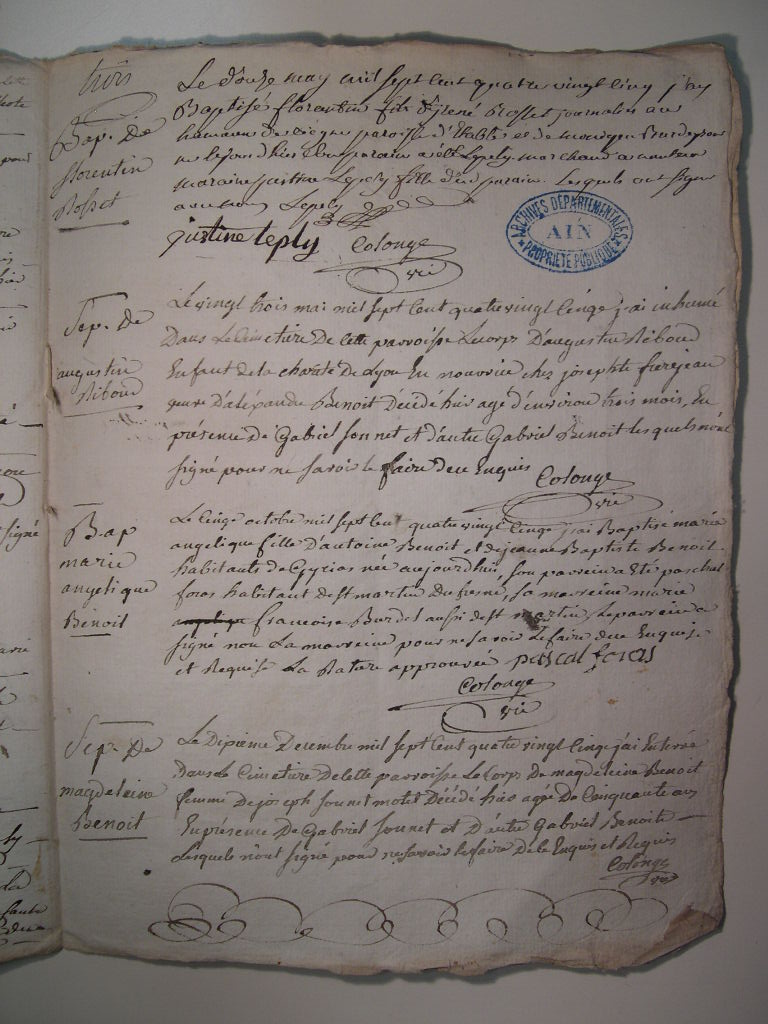 trois
Bap. De
florentin
Rosset
Le douze may mil sept cent quatre vingt cinq j'ay
Baptisés florentin fils d'jrené Rosset journalier au
hameau de paroisse d'Etables et de
ne le jour d'hier son parain a été Lepely marchand a
maraine justine Lepely fille d'un parain. Lesquels ont signé
avec nous Lepely
justine leply Colonge
vic
ARCHIVES DÉPARTEMENTALES
AIN
PROPRIÉTÉ PUBLIQUE
Sep. De
augustin
Ribout
Le vingt trois mai mil sept Cent quatre vingt Cinqe j'ai inhumé
Dans Le Cimetiere De Cette parroisse Le corps D'augustin Riboud
Enfant de la charité De Lyon En nourrice chez josephte furejean
D'alexandre Benoit Décédé hier agé d'environ trois mois, En
présence De Gabriel Sonnet et d'autre Gabriel Benoit lesquels n'ont
signé pour ne savoir le faire De ce Enquis
Colonge
vic
Bap
marie
angelique
Benoit
Le Cinqe octobre mil sept Cent quatre vingt Cinqe j'ai Baptisé marie
angelique fille D'antoine Benoit et de jeanne Baptiste Benoit
habitants de née aujourdhui, son parrein a Eté paschal
foras habitant de st martin Du fresne, sa marreine marie
angelique francoise Burdet aussi de st martin, Le parrein a
signé non La marreine pour ne savoir Le faire De ce Enquise
et Requise La Rature approuvée pascal foras
Colonge
vic
Sep. De
magdeleine
Benoit
Le Dixieme Decembre mil sept Cent quatre vingt Cinqe j'ai Enterré
Dans Le Cimetiere De Cette parroisse Le Corps De magdeleine Benoit
femme De joseph Sonnet motet Décédé hier agée De Cinquante ans
En présence De Gabriel Sonnet et D'autre Gabriel Benoit
Lesquels n'ont signé pour ne savoir le faire De Ce Enquis et Requis
Colonge
vic